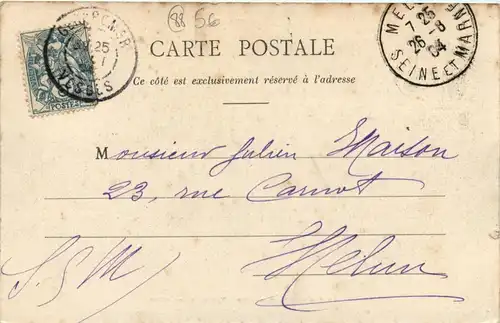 88 56
CARTE POSTALE
Ce côté est exclusivement réservé à l'adresse
VOSGES
25
POSTES
MELUN
SEINE ET MARNE
26 04
Monsieur Julien Maison
23, rue Carnot
Melun
S & M